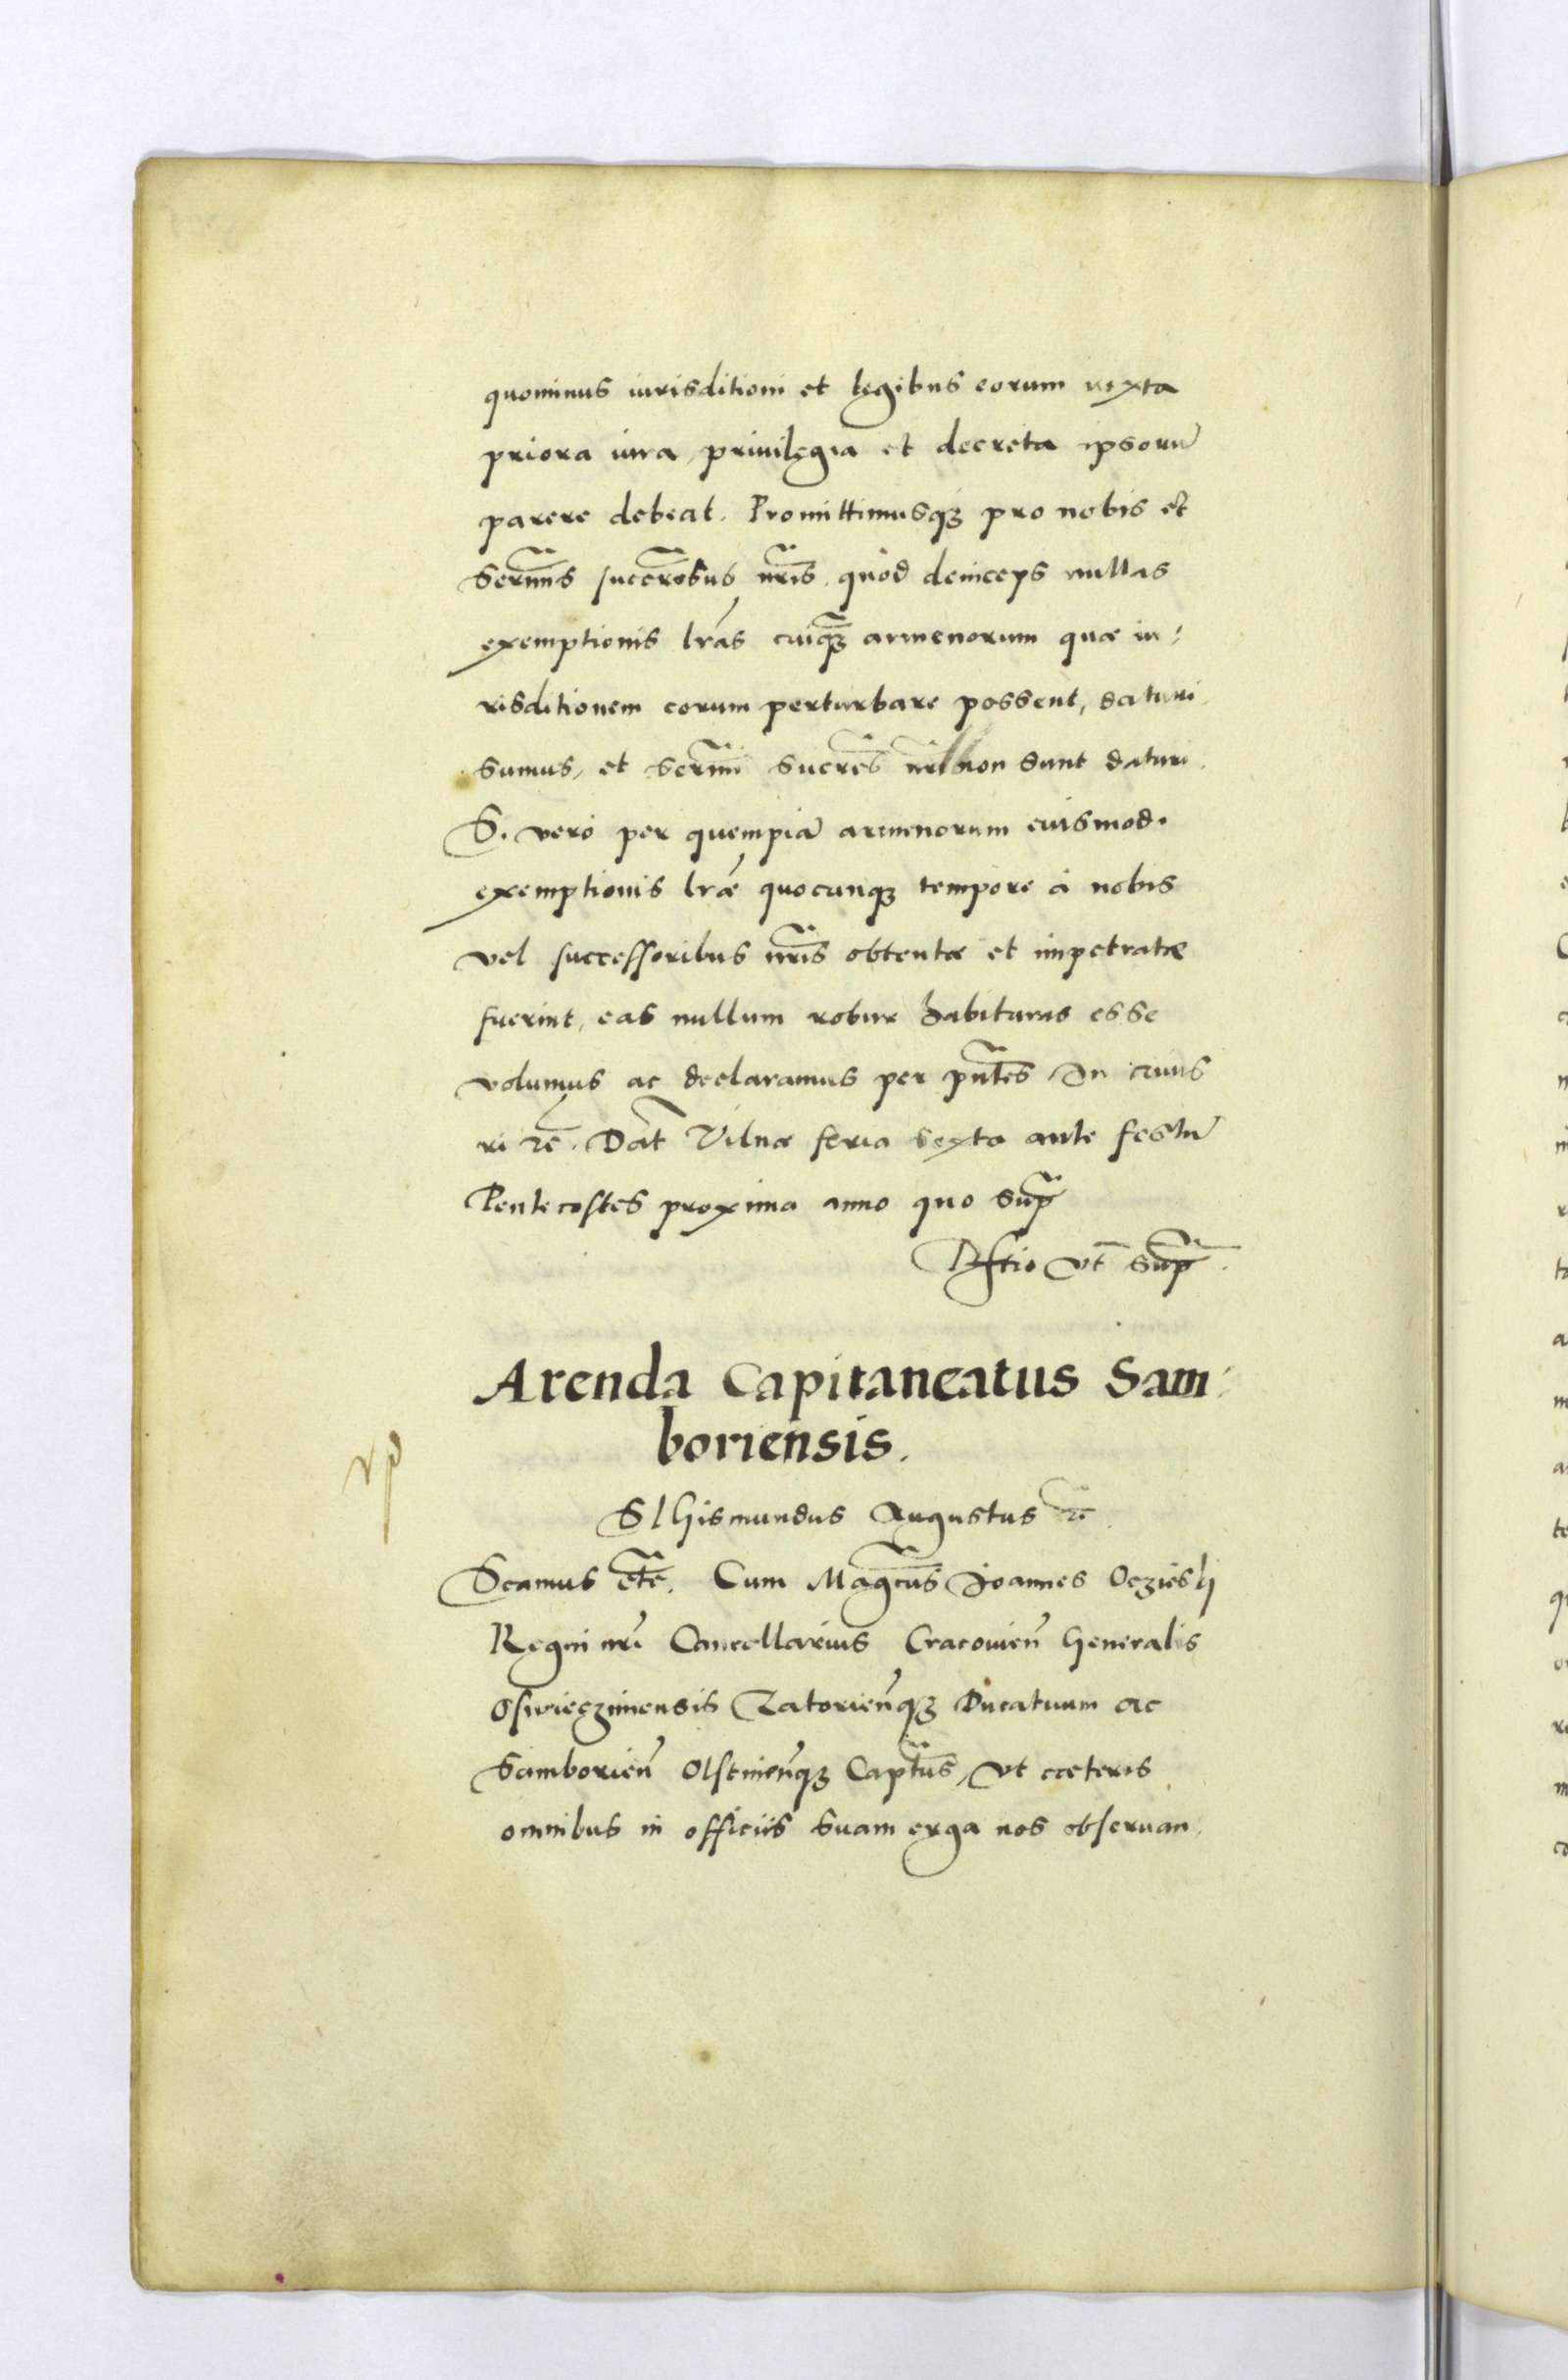 quominus iurisditioni et legibus eorum iuxta
priora iura, privilegia et decreta ipsorũ
parere debeat. Promittimusqʒ pro nobis et
Serm̃is sucero͂bus nr̃is. quòd deinceps nullas
exemptionis lr̃as cuiqʒ armenorum quæ iu:
risditionem eorum perturbare possent, daturi
sumus, et Serm̃i sucrẽs nr̃i non sunt daturi.
S. verò per quempiã armenorum eiusmod.
exemptionis lr̃æ quocunqʒ tempore à nobis
vel successoribus nr̃is obtentæ et impetratæ
fuerint, eas nullum robur habituras esse
volumus ac declaramus per pñtes In cuius
rei rẽ. Dat̃ Vilnæ feria sexta ante festũ
Pentecostes proxima anno quo sup̃
Rl̃tio vt sup̃.
Arenda Capitaneatus Sam:
boriensis.
vp
SIGismundus Augustus rẽ.
Scamus etc̃. Cum Mag̃cus Ioannes Oczieski
Regni nr̃i Cancellarius Cracovien̄ Generalis
Osvieczimensis Zatorien̄qʒ Ducatuum ac
Samborien̄ Olstinen̄qʒ Capt̃us, vt cæteris
omnibus in officiis suam erga nos observan